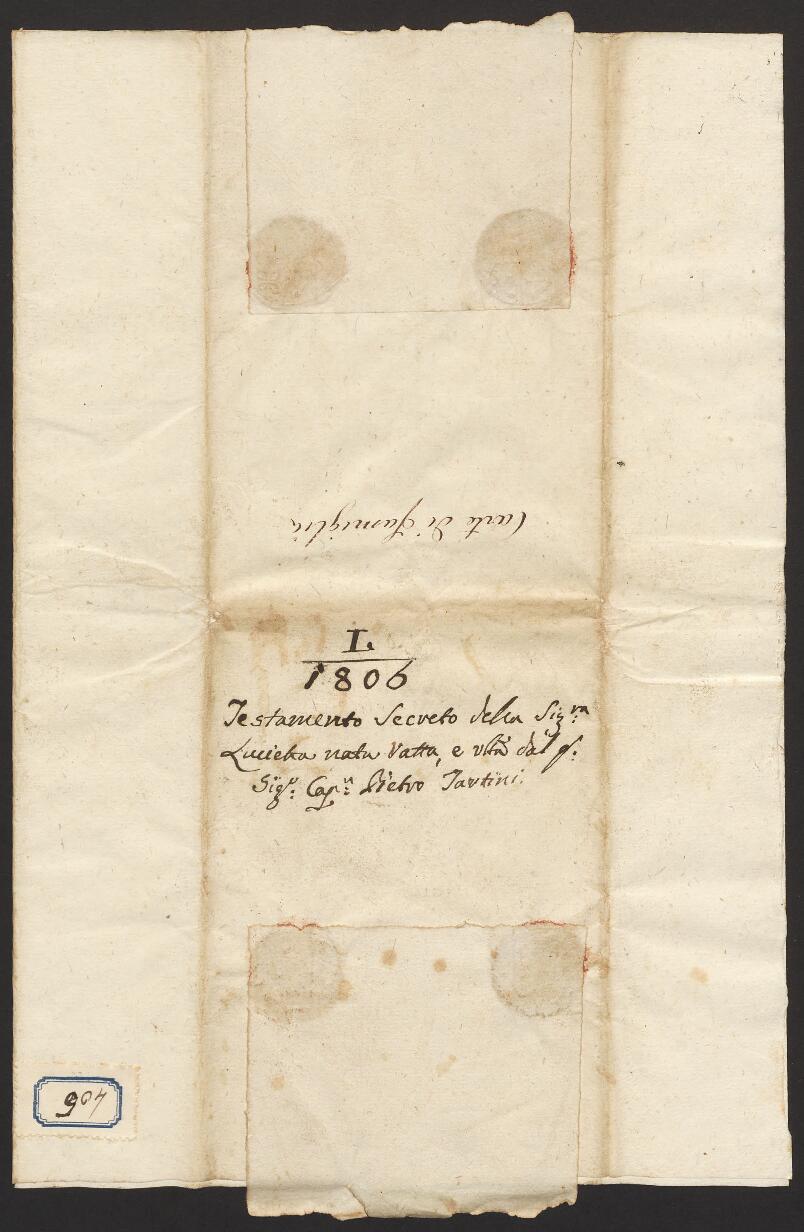 Carte di Famiglia
L.
1806
Testamento Secreto della Sig:ra
Lucietta nata Vatta, e vta dal q:
Sig:r Cap:n Pietro Tartini.
904